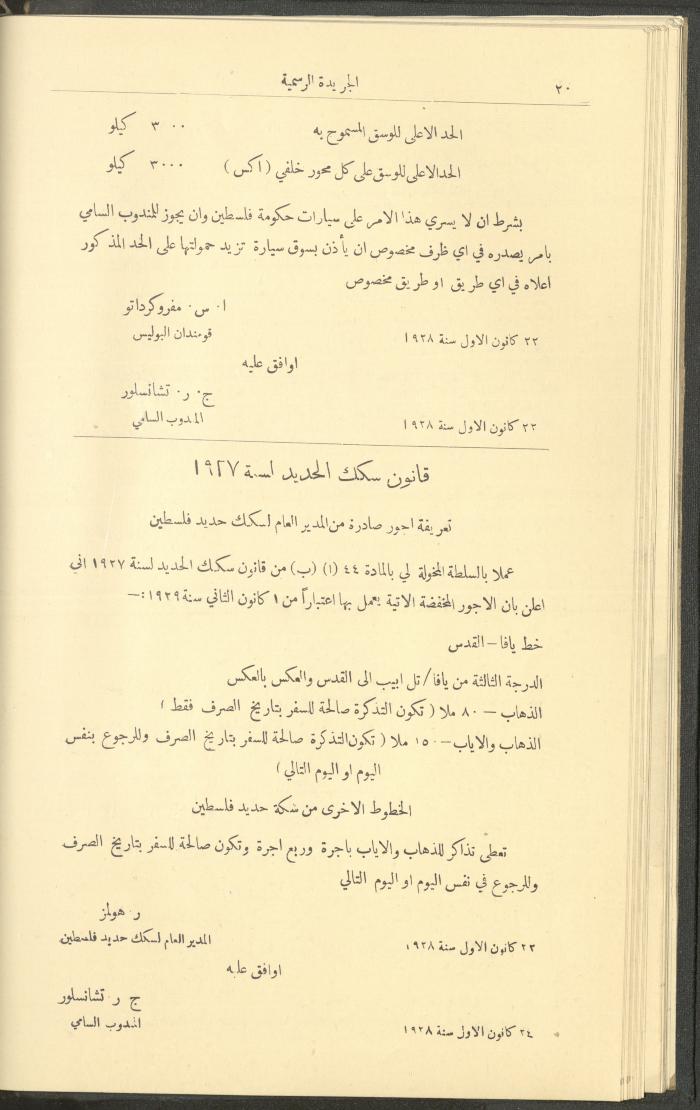 ٢٠
الجريدة الرسمية
الحد الاعلى للوسق المسموح به ٣٠٠٠ كيلو
الحد الاعلى للوسق على كل محور خلفي (اكس) ٣٠٠٠ كيلو
بشرط ان لا يسري هذا الامر على سيارات حكومة فلسطين وان يجوز للمندوب السامي
بامر يصدره في اي ظرف مخصوص ان يأذن بسوق سيارة تزيد حمولتها على الحد المذكور
اعلاه في اي طريق او طريق مخصوص
ا. س. مفروكرداتو
٢٢ كانون الاول سنة ١٩٢٨ قومندان البوليس
اوافق عليه
ج. ر. تشانسلور
٢٢ كانون الاول سنة ١٩٢٨ المندوب السامي
قانون سكك الحديد لسنة ١٩٢٧
تعريفة اجور صادرة من المدير العام لسكك حديد فلسطين
عملا بالسلطة المخولة لي بالمادة ٤٤ (١) (ب) من قانون سكك الحديد لسنة ١٩٢٧ اني
اعلن بان الاجور المخفضة الاتية يعمل بها اعتباراً من ١ كانون الثاني سنة ١٩٢٩:—
خط يافا – القدس
الدرجة الثالثة من يافا/تل ابيب الى القدس والعكس بالعكس
الذهاب — ٨٠ ملا (تكون التذكرة صالحة للسفر بتاريخ الصرف فقط)
الذهاب والاياب — ١٥٠ ملا (تكون التذكرة صالحة للسفر بتاريخ الصرف وللرجوع بنفس
اليوم او اليوم التالي)
الخطوط الاخرى من سكة حديد فلسطين
تعطى تذاكر للذهاب والاياب باجرة وربع اجرة وتكون صالحة للسفر بتاريخ الصرف
وللرجوع في نفس اليوم او اليوم التالي
ر. هولمز
٢٣ كانون الاول سنة ١٩٢٨ المدير العام لسكك حديد فلسطين
اوافق عليه
ج ر تشانسلور
٢٤ كانون الاول سنة ١٩٢٨ المندوب السامي